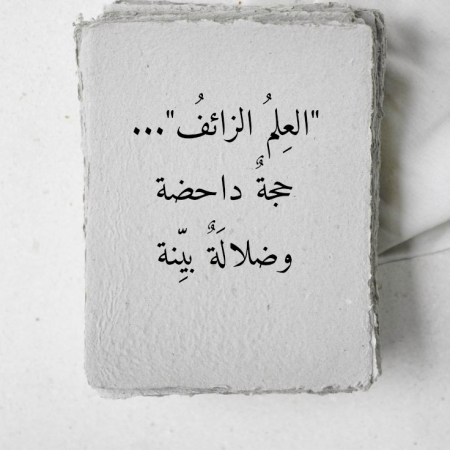 "العِلمُ الزائفُ"...
حجةٌ داحضة
وضلالَةٌ بيِّنة